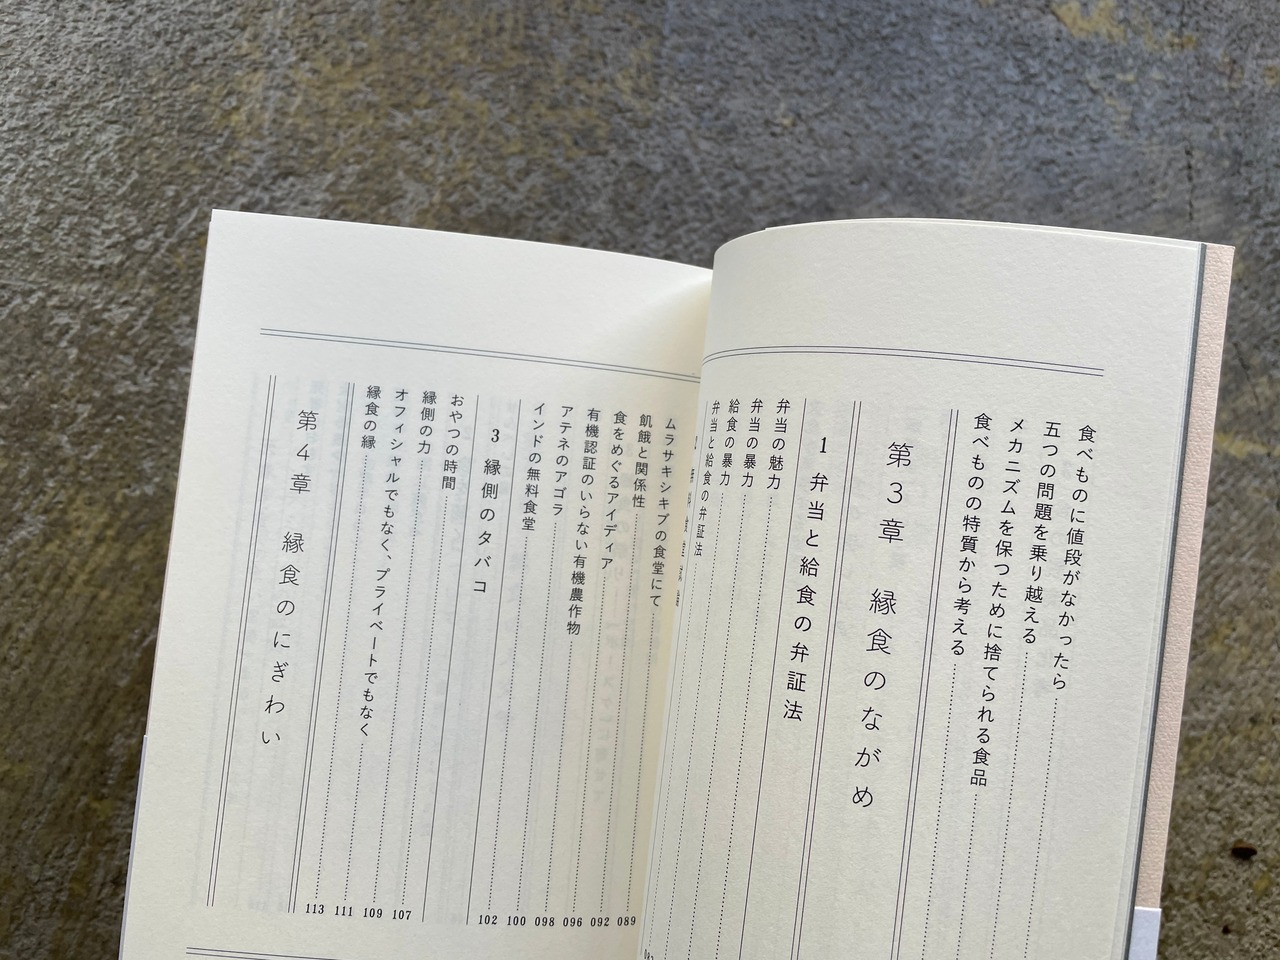 食べものに値段がなかったら
五つの問題を乗り越える
メカニズムを保つために捨てられる食品
食べものの特質から考える
第3章 縁食のながめ
1 弁当と給食の弁証法
弁当の魅力
弁当の暴力
給食の暴力
弁当と給食の弁証法
ムラサキシキブの食堂にて
飢餓と関係性 089
食をめぐるアイディア 092
有機認証のいらない有機農作物 096
アテネのアゴラ 098
インドの無料食堂 100
3 縁側のタバコ 102
おやつの時間
縁側の力 107
オフィシャルでもなく、プライベートでもなく 109
縁食の縁 111
113
第4章 縁食のにぎわい